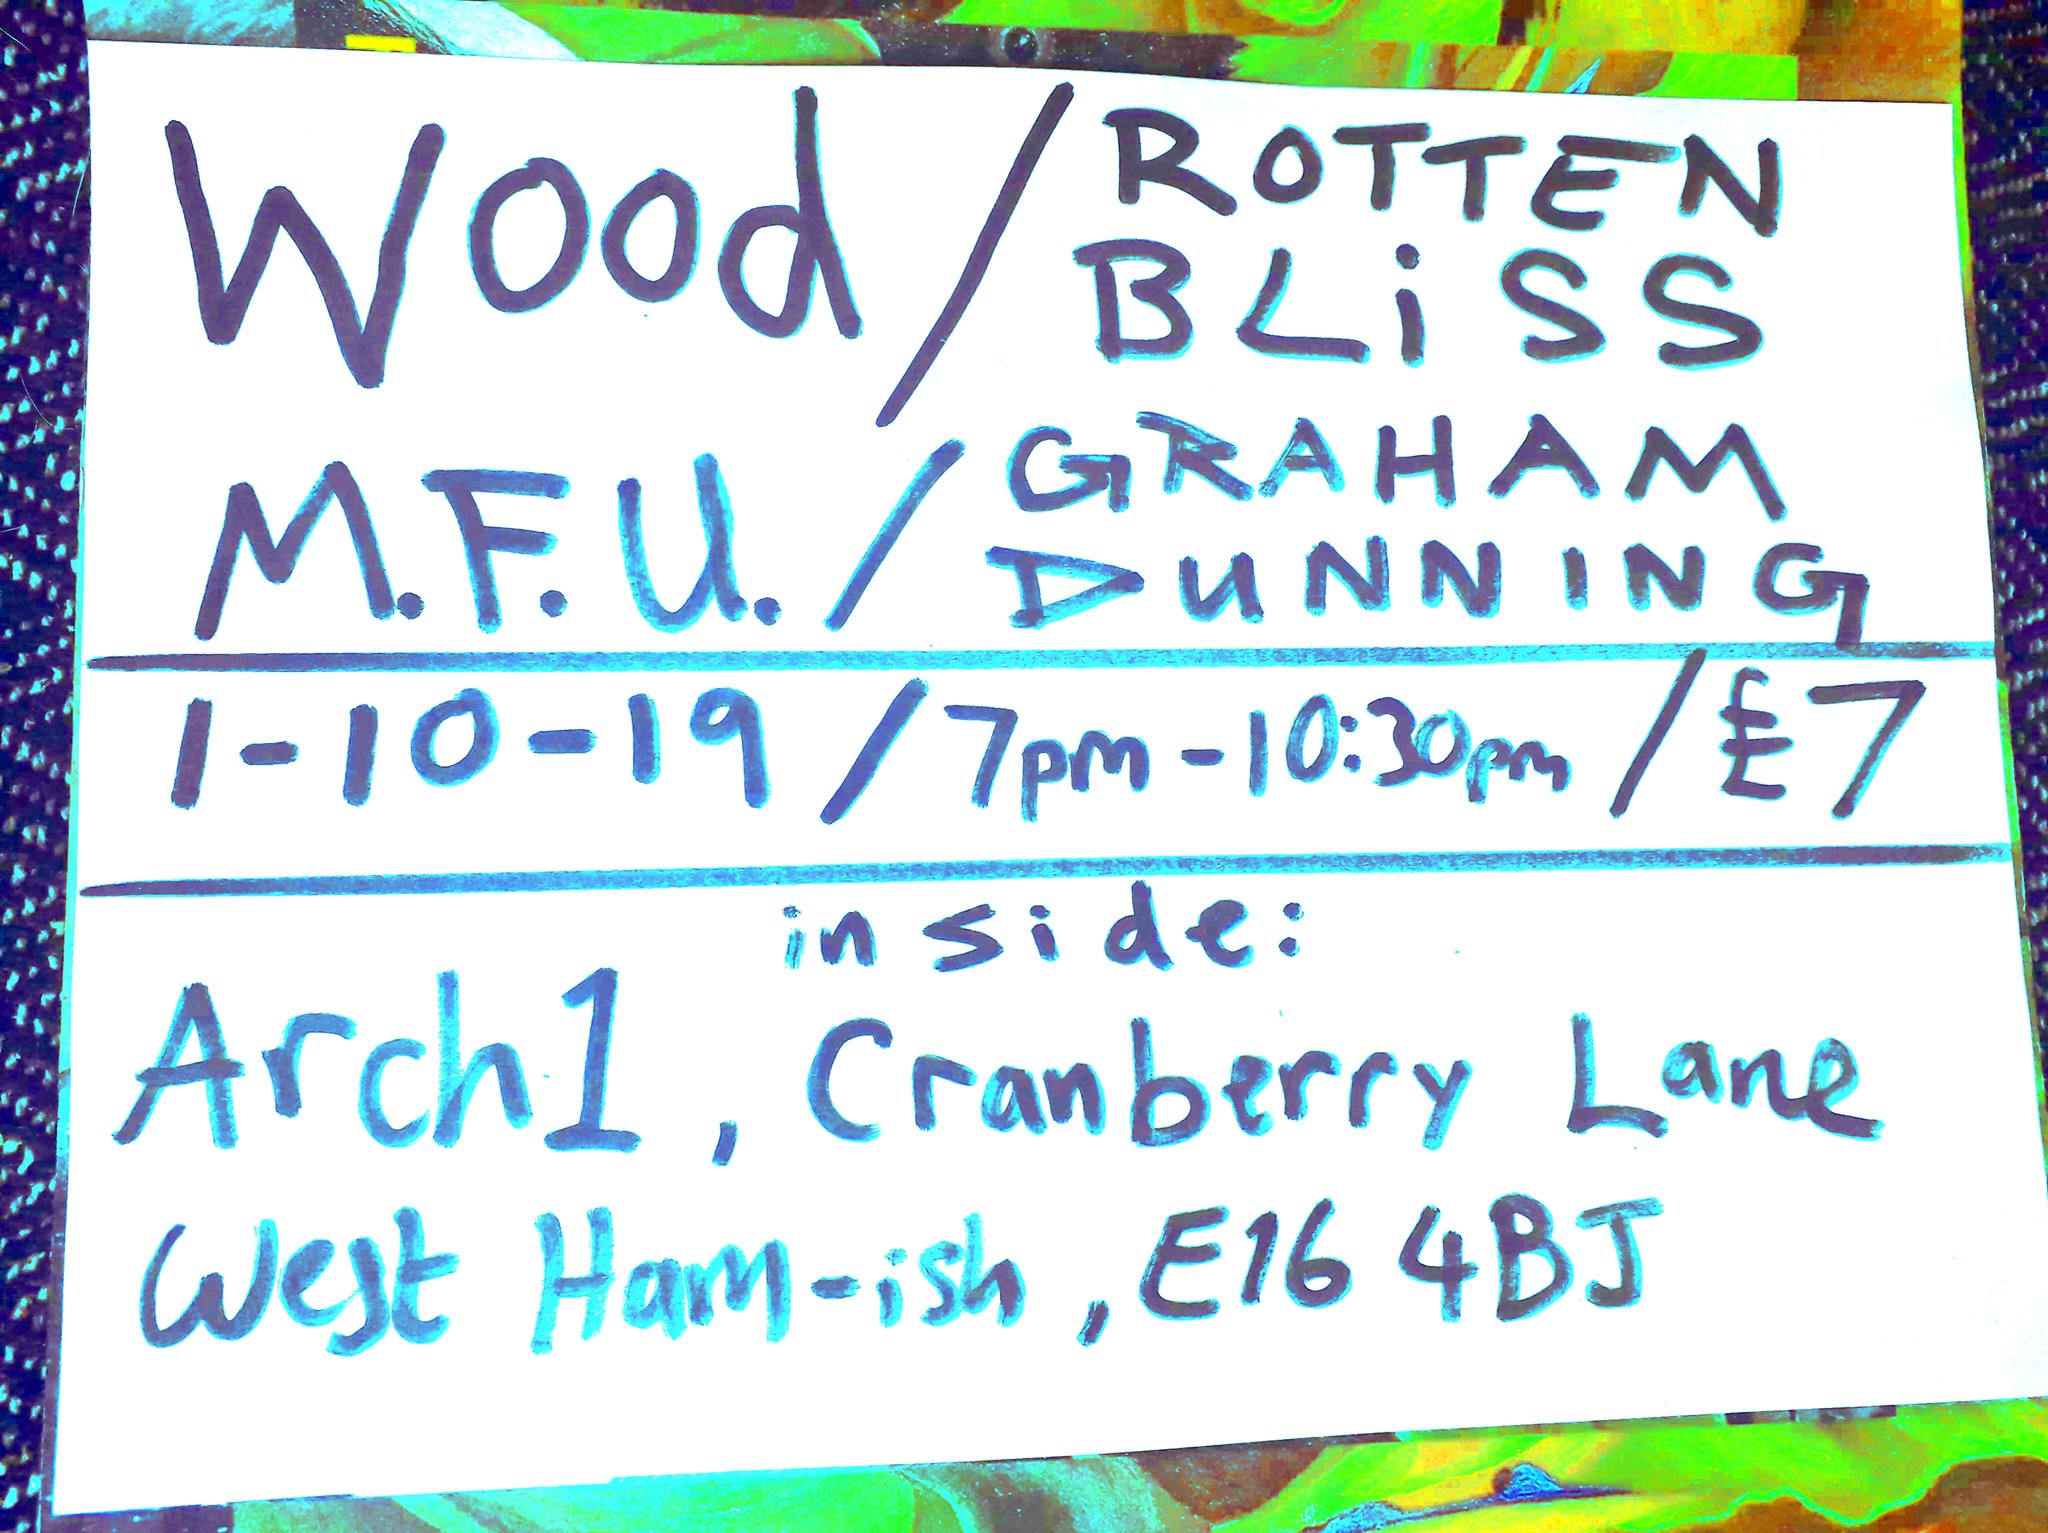 Wood / ROTTEN BLiSS
M.F.U. / GRAHAM DUNNING
1-10-19 / 7pm-10:30pm / £7
inside:
Arch1, Cranberry Lane
West Ham-ish, E16 4BJ